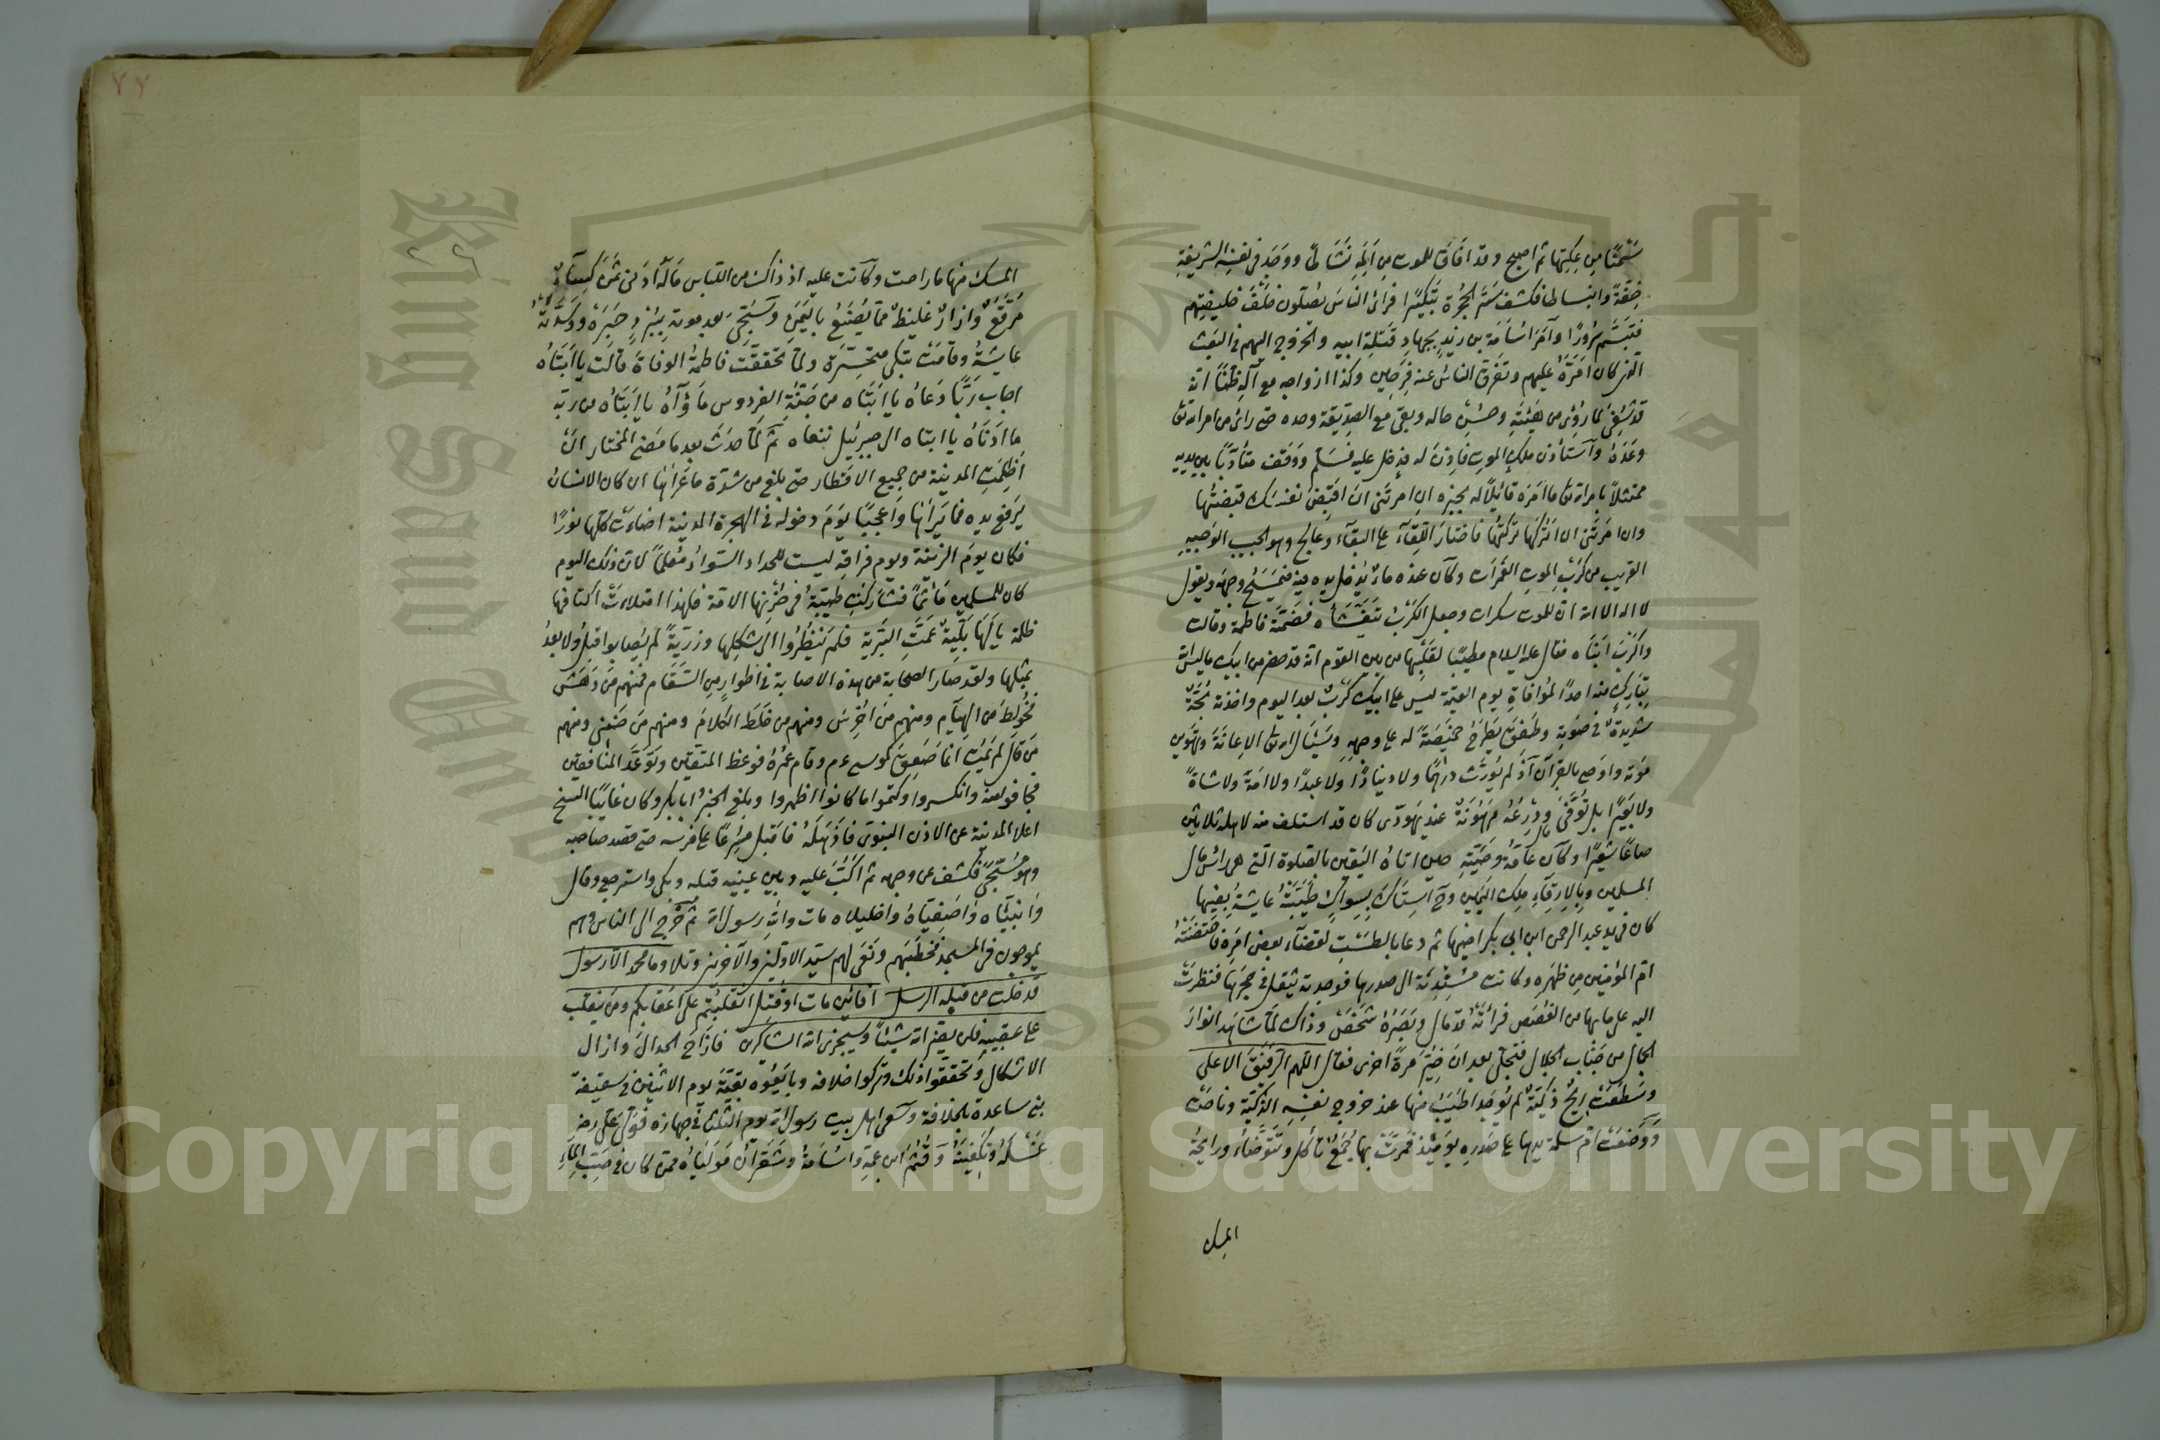 سَمْنًا مِن عكتها ثم اصبح وقد افَاقَ للموت مِن اَلَمِهِ نَشَاطًا ووجَدَ فى نفسِه الشريفةِ
خِفّةً وانبساطا فكشف سَتْر الحجْرةِ بَتكيُّرا فرأى الناسَ يُصلّون خلْفَ خليفتِهم
فتبسَّم سُرُورًا وآمَرَ اُسَامَة بن زيدٍ بجهادِ قتَلةِ ابيه والخروج اليهم فى البَعْث
آلذى كان اَمَّرَهُ عليهم وتفرّق الناسُ عنه فَرِحِين وكذا ازواجه مع آلِهِ ظَنًّا انّه
قد شُفِىَ لما رُؤىَ من هَيئتِهِ وحُسْنِ حاله وبقى مع الصدِّيقة وحده حتى رأى من امر الله تعالى
وعْدَهُ وآستأذن ملكُ الموتِ فاُذِنَ له فدخل عليه فسلّم ووقف متأدِّبًا بين يديه
ممتثلاً بامر الله تعالى ما امره قائلاً له يخيره ان امرتَنى اَن اقبِضَ نفسك قبضتُها
وان امَرتَنى ان اترُكَها تركتُها فاختار اللِّقآءَ على البقآء وعَالَج وهو الحبيب الوجيه
القريب من كَرْبِ الموتِ الغمرَات وكآن عنده مآءٌ يُدخل يده فيه فيَمْسَحُ وجهه ويقول
لا اله الا الله انّ للموت سكرات وجعل الكَرْبُ يَتَغَشَّاه فضمّته فاطمة وقالت
واكَرْبَ ابَتَاه فقال عليه السلام مطيّبًا لقلبِها من بين القوم انه قد حضر من ابيك ما ليس الله
بتَارِكٍ منه احدًا لمُوَافَاةِ يوم القيمة ليس على ابيك كَرْبٌ بعد اليوم واخذته بُحَّةٌ
شديدةٌ فى صَوتِه وطَفِقَ يطرَحُ خَمِيصَةً له على وجهِهِ ويَسْئَال الله تعالى الاِعانَةَ وتهْوين
مَوْته واوصى بالقرآن آذْ لم يُورِّث درْهَمًا ولا دينارًا ولا عبدًا ولا امَةً ولا شاةً
ولا بَعِيرًا بل تُوُفّىَ ودِرْعُهُ مَرْهُونَةٌ عند يَهودىّ كان قد استلف منه لاهله ثلاثين
صاعًا شعيرًا وكآن عآمّةُ وصَيّتهِ حين اتاهُ اليَقين بالصَّلوة الّتى هى رأس مال
المسلمين وبالاِرِقّآءِ مِلك اليَمين وآستَاكَ بسِواكٍ طيَّبَتْهُ عايشةُ بِفِيهَا
كان فى يد عبد الرحمن ابن ابى بكر اخيها ثم دعا بالطَسْتِ لقضآء بعض امره فاحتضنَتْهُ
امّ المؤمنين مِن ظهْره وكانت مُسْنِدَتَه الى صدرها فوجدته يثقل فى حَجرِها فنظرَتْ
اليه على مابها من الغُصَصِ فرأتْهُ قد مال وبَصَرُهُ شَخَصَ وذاك لمّا شاهَد انوارَ
الجمال من جَنَابِ الجلال فتجلّى بعد ان خُيِّر مَرةً اخرى فقال اللهم الرَّفِيقَ الاعلى
وسَطَعَتْ رِيحٌ ذكيّةٌ لم تُوجَد اطيَبُ منها عند خروج نفسِهِ الزكيّة وفاضَتْ
وَوَضَعَتْ امّ سلمةَ يدها على صَدْرِه يومئذ فمَرَّتْ بها جُمَعٌ تأكلُ وتتَوضَّاءُ ورايحةُ
المسك
٧٧
المسك منها ما راحت وكآنت عليه اذ ذاك من اللباس مآلُه ادنى ثمَن كِساءٌ
مُرقّعٌ وازارٌ غليظٌ ممّا يُصْنَعُ باليَمَن وسُجِّىَ بعد موته بِبُرْدِ حِبَرةٍ ووسّدَتْهُ
عايشةُ وقامَتْ تبكى متحسِّرة ولمّا تحققَتْ فاطمةُ الوفاةَ قالت يا ابَتَاهُ
اجاب رَبًّا دَعاهُ يا ابَتَاه من جَنّةُ الفِردوس مأوآهُ يا ابَتَاهُ من ربّه
ما ادنَاهُ يا ابتاه الى جبرئيل ننعاه ثمّ لمّا حدَثَ بعد ما قضى المختار انْ
اَظلَمَتِ المدينة من جميع الاقطار حتى بلغ من شدّة ما عَرَاها ان كان الانسانُ
يَرفع يده فما يَرَاها وَاعَجبًا يَوْمَ دخوله فى الهجرة المدينة اضاءَتْ كلّها نورًا
فكان يومَ الزينة ويوم فراقِه لبست للحداد السَّوادُ مُعلِمًا لانّ ذلك اليوم
كان للمسلمين مَأْتَمًا فشاركَت طيبةُ فى حُزْنها الامّة فلهذا امتلاءت اكنافها
ظلمة يا لهَا بَليّةٌ عَمَّتِ البَريّة فلم يَنظُرُوا الى شكلِها ورَزِيّةً لم يُصابوا قبلُ ولا بعدُ
بمثلها ولقد صار الصحابة من هذه الاصابة فى اطوارٍ من السّقام فمنهم مَنْ دَهَشَ
فخُولِطَ من الهِيَام ومنهم مَن اُخْرِسَ ومنهم من خَلَطَ الكلامَ ومنهم مَن ضَنِىَ ومنهم
مَن قال لم يَمُت انما صُعِقَ كموسى عم وقام عُمَرُ فوعظ المتقين وتوَعّدَ المنافقين
فخافو لعنه وانكسروا وكتموا ما كانوا اظهروا وبلغ الخبرُ ابا بكر وكان غايبًا بالسنح
اعلا المدينة عن الاذن النبوى فاَذْهَلَهُ فاقبل مسْرِعًا على فرسه حتى قصد صاحبه
وهو مُسَجًّى فكشف عن وجهه ثم اَكبَّ عليه وبين عينيه قبله وبكى واسترجع وقال
وا نبيّاه وَاصَفِيّاهُ واخليلاه مات والله رسول الله ثُم خرج الى الناس وهم
يموجون فى المسجد فخطبَهم ونَعَى لهم سيّد الاوّلين والآخرين وتلا وما محمد الا رسول
قد خلت من قبله الرسل افائن مات او قتل انقلبتم على اعقابكم ومن ينقلب
على عقبيه فلن يضر الله شيئا وسيجزى الله الشاكرين فازاح الجدالَ وازال
الاشكال وتحققوا ذلك وتركوا خلافه وبايَعُوه بقيّةَ يوم الاثنين فى سقيفة
بنى ساعدة بالخلافة وسعى اهل بيت رسول الله يوم الثلثا فى جهازه فتولّى علىّ رضه
غسْلَهُ وتكفينَهُ وقُثَمُ ابن عمّه واسَامةُ وشَقرانُ موليَاهُ ممن كان فى صَبِّ المآءِ